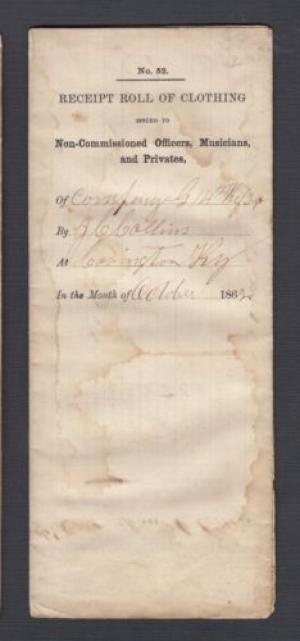 No. 52.
RECEIPT ROLL OF CLOTHING
ISSUED TO
Non-Commissioned Officers, Musicians,
and Privates,
Of Company G 14th Ky
By J C Collins
At Covington Ky
In the Month of October 1862